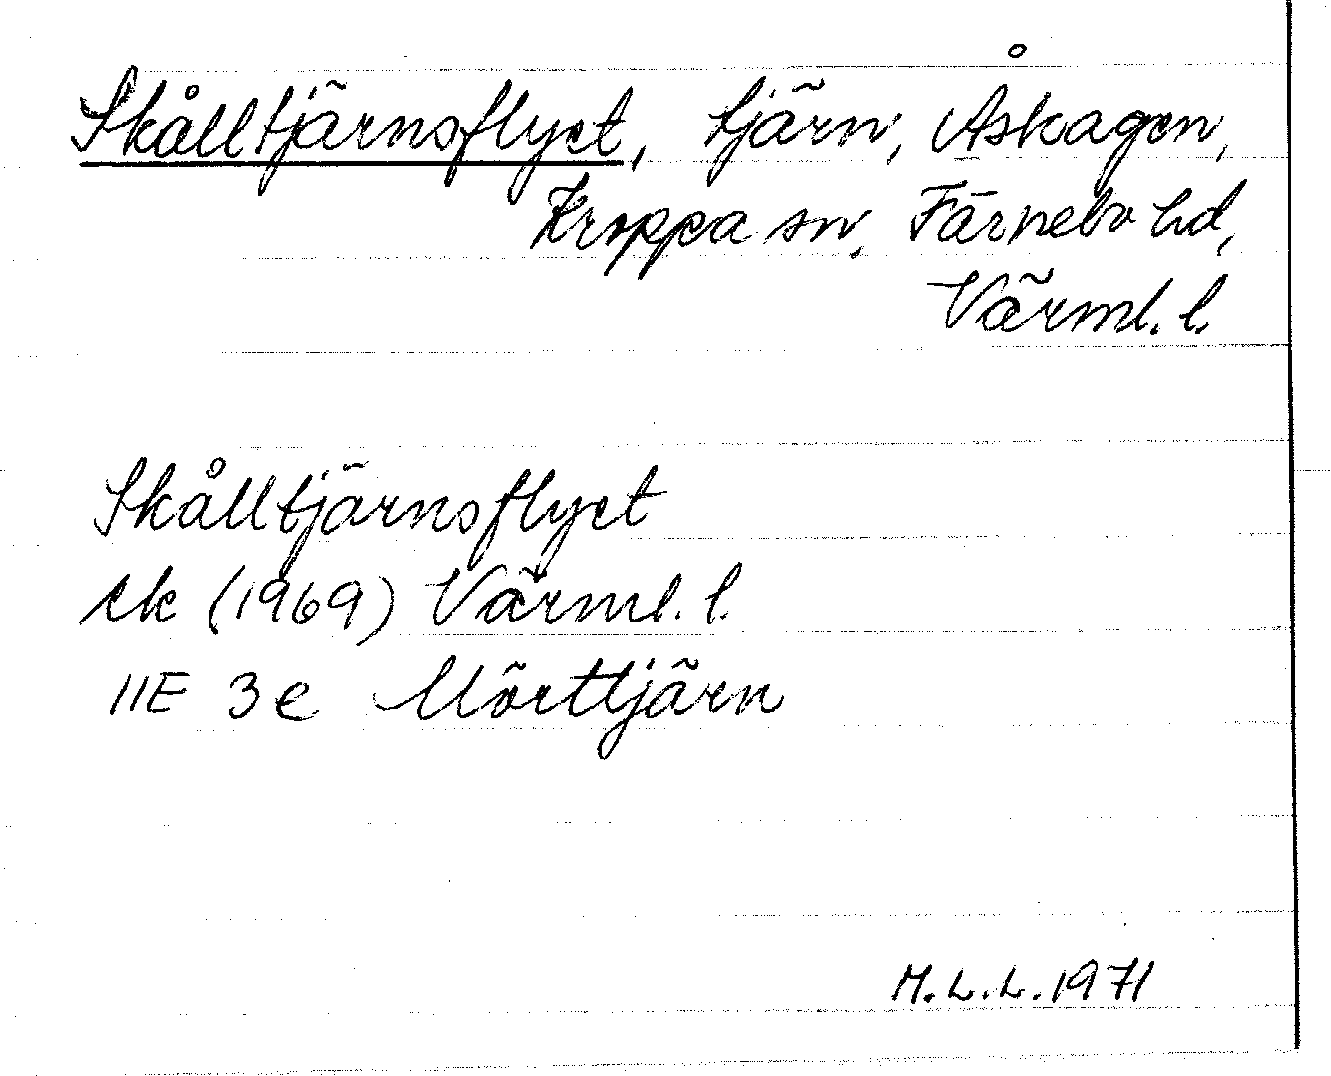 Skålltjärnsflyet, tjärn, Åskagen,
Kroppa sn, Färnebo hd,
Värml. l.
Skålltjärnsflyet
ek (1969) Värml. l.
11E 3e Mörttjärn
M.L.L. 1971